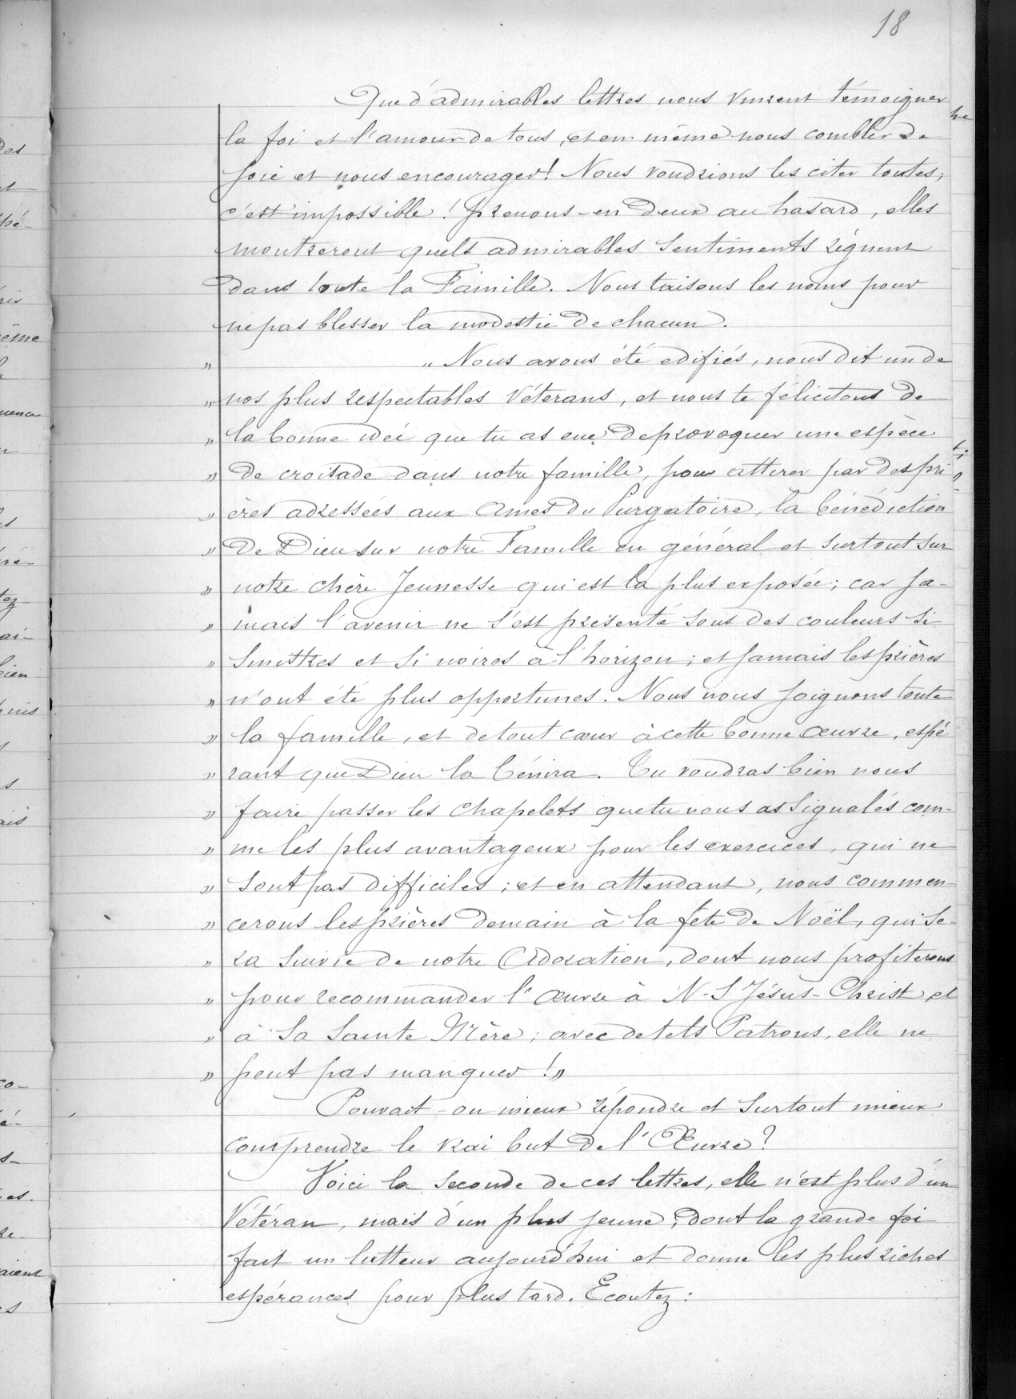 18
Que d'admirables lettres nous vinrent témoigner
la foi et l'amour de tous, et en même nous combler de
joie et nous encourager! Nous voudrions les citer toutes,
c'est impossible! prenons-en deux au hasard, elles
montreront quels admirables sentiments règnent
dans toute la Famille. Nous taisons les noms pour
ne pas blesser la modestie de chacun.
" " Nous avons été édifiés, nous dit un de
" nos plus respectables Vétérans, et nous te félicitons de
" la bonne idée que tu as eue de provoquer une espèce
" de croisade dans notre famille, pour attirer par des pri
" ères adressées aux Ames du Purgatoire, la bénédiction
" de Dieu sur notre Famille en général et surtout sur
" notre chère Jeunesse qui est la plus exposée; car ja-
" mais l'avenir ne s'est présenté sous des couleurs si
" sinistres et si noires à l'horizon; et jamais les prières
" n'ont été plus opportunes. Nous nous joignons toute
" la famille, et de tout cœur à cette bonne œuvre, espé
" rant que Dieu la bénira. Tu voudras bien nous
" faire passer les chapelets que tu nous as signalés com-
" me les plus avantageux pour les exercices, qui ne
" sont pas difficiles; et en attendant, nous commen-
" cerons les prières demain à la fête de Noël, qui se-
" ra suivie de notre Adoration, dont nous profiterons
" pour recommander l'œuvre à N-S Jésus-Christ et
" à Sa Sainte Mère; avec de tels Patrons, elle ne
" peut pas manquer!"
Pouvait-on mieux répondre et surtout mieux
comprendre le vrai but de l'Œuvre?
Voici la seconde de ces lettres, elle n'est plus d'un
Vétéran, mais d'un plus jeune, dont la grande foi
fait un lutteur aujourd'hui et donne les plus riches
espérances pour plus tard. Ecoutez: